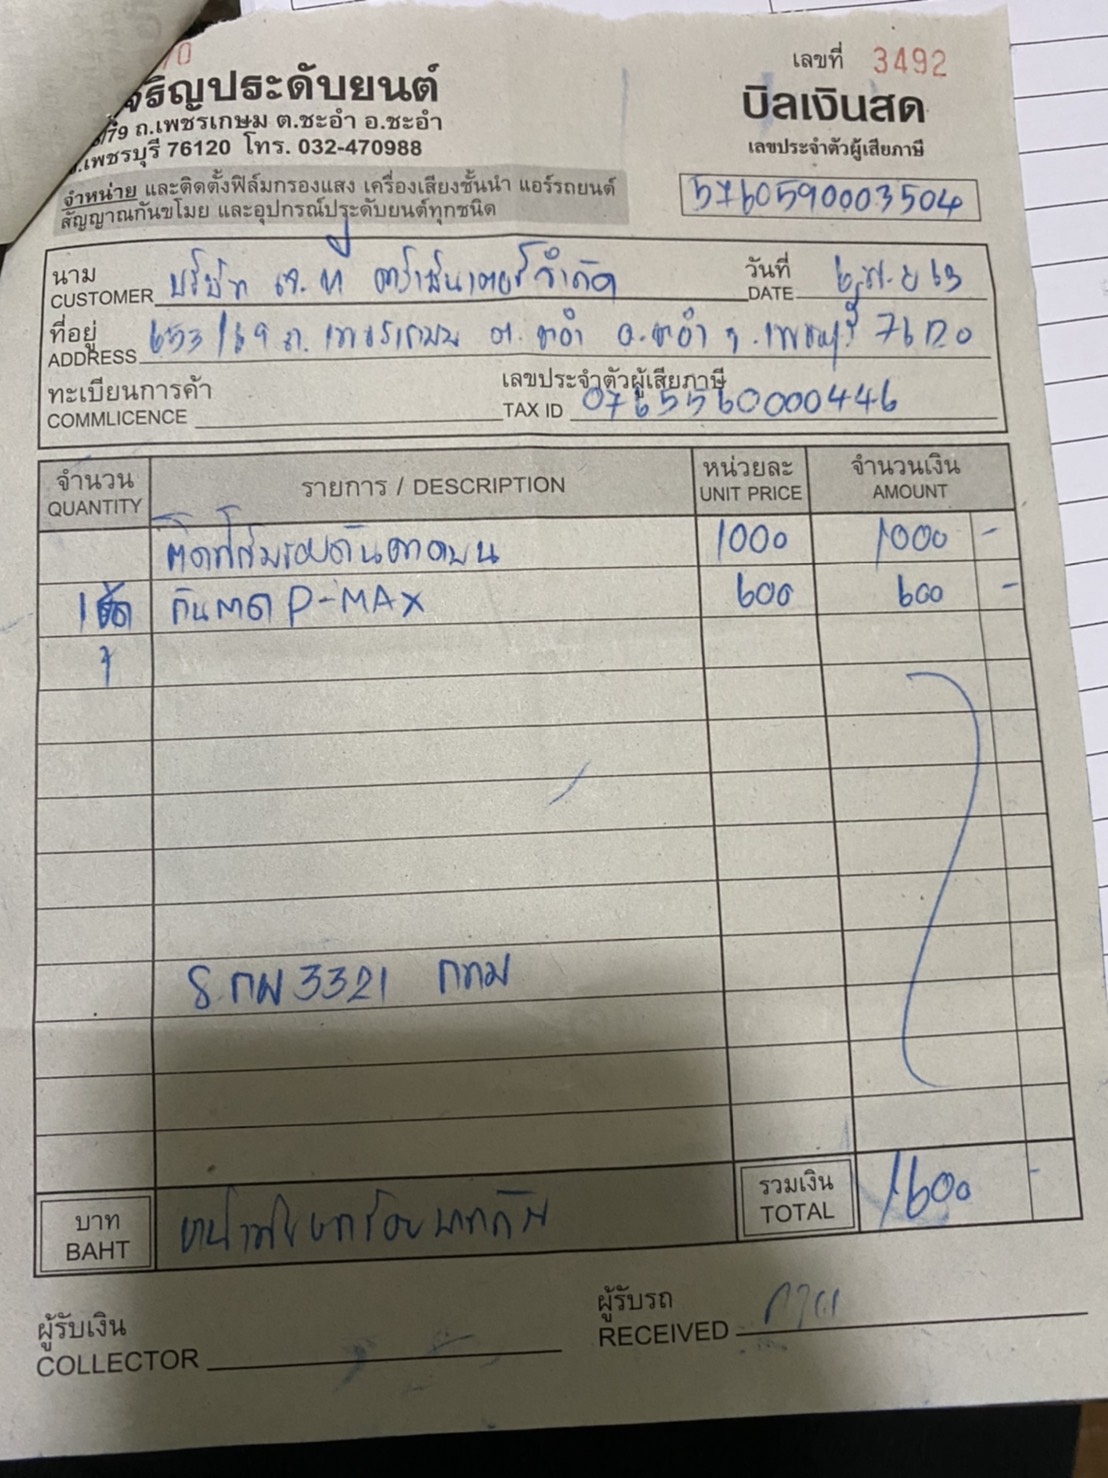 70
เลขที่ 3492
จริญประดับยนต์
บิลเงินสด
/79 ถ.เพชรเกษม ต.ชะอำ อ.ชะอำ
จ.เพชรบุรี 76120 โทร. 032-470988
เลขประจำตัวผู้เสียภาษี
5760590003504
จำหน่าย และติดตั้งฟิล์มกรองแสง เครื่องเสียงชั้นนำ แอร์รถยนต์
สัญญาณกันขโมย และอุปกรณ์ประดับยนต์ทุกชนิด
นาม
CUSTOMER บริษัท เจ.ที จำกัด
วันที่
DATE
ที่อยู่
ADDRESS 653/69 ถ. เพชรเกษม ต. ชะอำ อ. ชะอำ จ. เพชรบุรี 76120
ทะเบียนการค้า
COMMLICENCE
เลขประจำตัวผู้เสียภาษี
TAX ID 0765560000446
จำนวน
QUANTITY
รายการ / DESCRIPTION
หน่วยละ
UNIT PRICE
จำนวนเงิน
AMOUNT
ติดฟิล์มรอบคันบน 1000 1000 -
1 P-MAX 600 600 -
3321 กทม
บาท
BAHT หนึ่งพันหกร้อยบาทถ้วน
รวมเงิน
TOTAL 1600 -
ผู้รับเงิน
COLLECTOR
ผู้รับรถ
RECEIVED